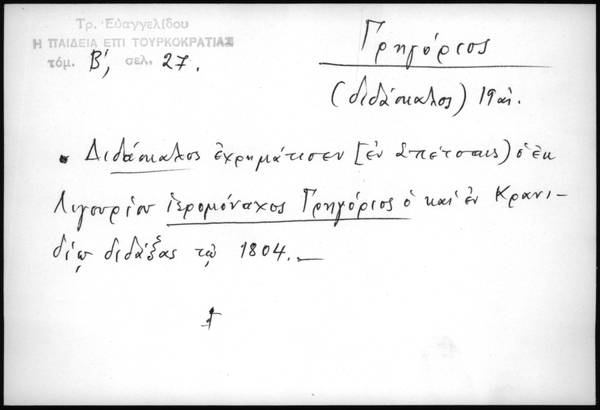 Τρ. Εὐαγγελίδου
Η ΠΑΙΔΕΙΑ ΕΠΙ ΤΟΥΡΚΟΚΡΑΤΙΑΣ
τόμ. Β', σελ. 27.
Γρηγόριος
(διδάσκαλος) 19 αἰ.
Διδάσκαλος ἐχρημάτισεν [ἐν Σπέτσαις) ὁ ἐκ
Λιγουρίου ἱερομόναχος Γρηγόριος ὁ καὶ ἐν Κρανι-
δίῳ διδάξας τῷ 1804.